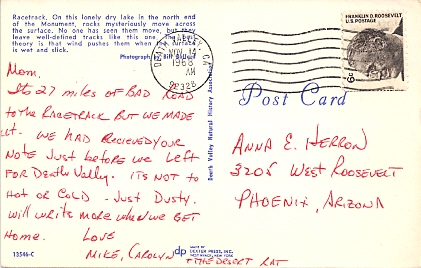 Racetrack. On this lonely dry lake in the north end
of the Monument, rocks mysteriously move across
the surface. No one has seen them move, but they
leave well-defined tracks like this one. One
theory is that wind pushes them when the surface
is wet and slick.
Photograph by Bill
DEATH VALLEY, CA
NOV 14
1968
AM
92328
FRANKLIN D. ROOSEVELT
6¢
Post Card
Mom,
Its 27 miles of BAD ROAD
to the RACETRACK BUT WE MADE
it - WE HAD RECIEVED YOUR
NOTE Just before we Left
FOR Death Valley. ITS NOT TO
HOT OR COLD - Just Dusty.
Will write more when we GET
Home. LOVE
MIKE, CAROLYN
+ THE DESERT RAT
Death Valley Natural History Association
ANNA E. HERRON
3205 WEST ROOSEVELT
PHOENIX, ARIZONA
13546-C
dp
MADE BY
DEXTER PRESS, INC.
WEST NYACK, NEW YORK